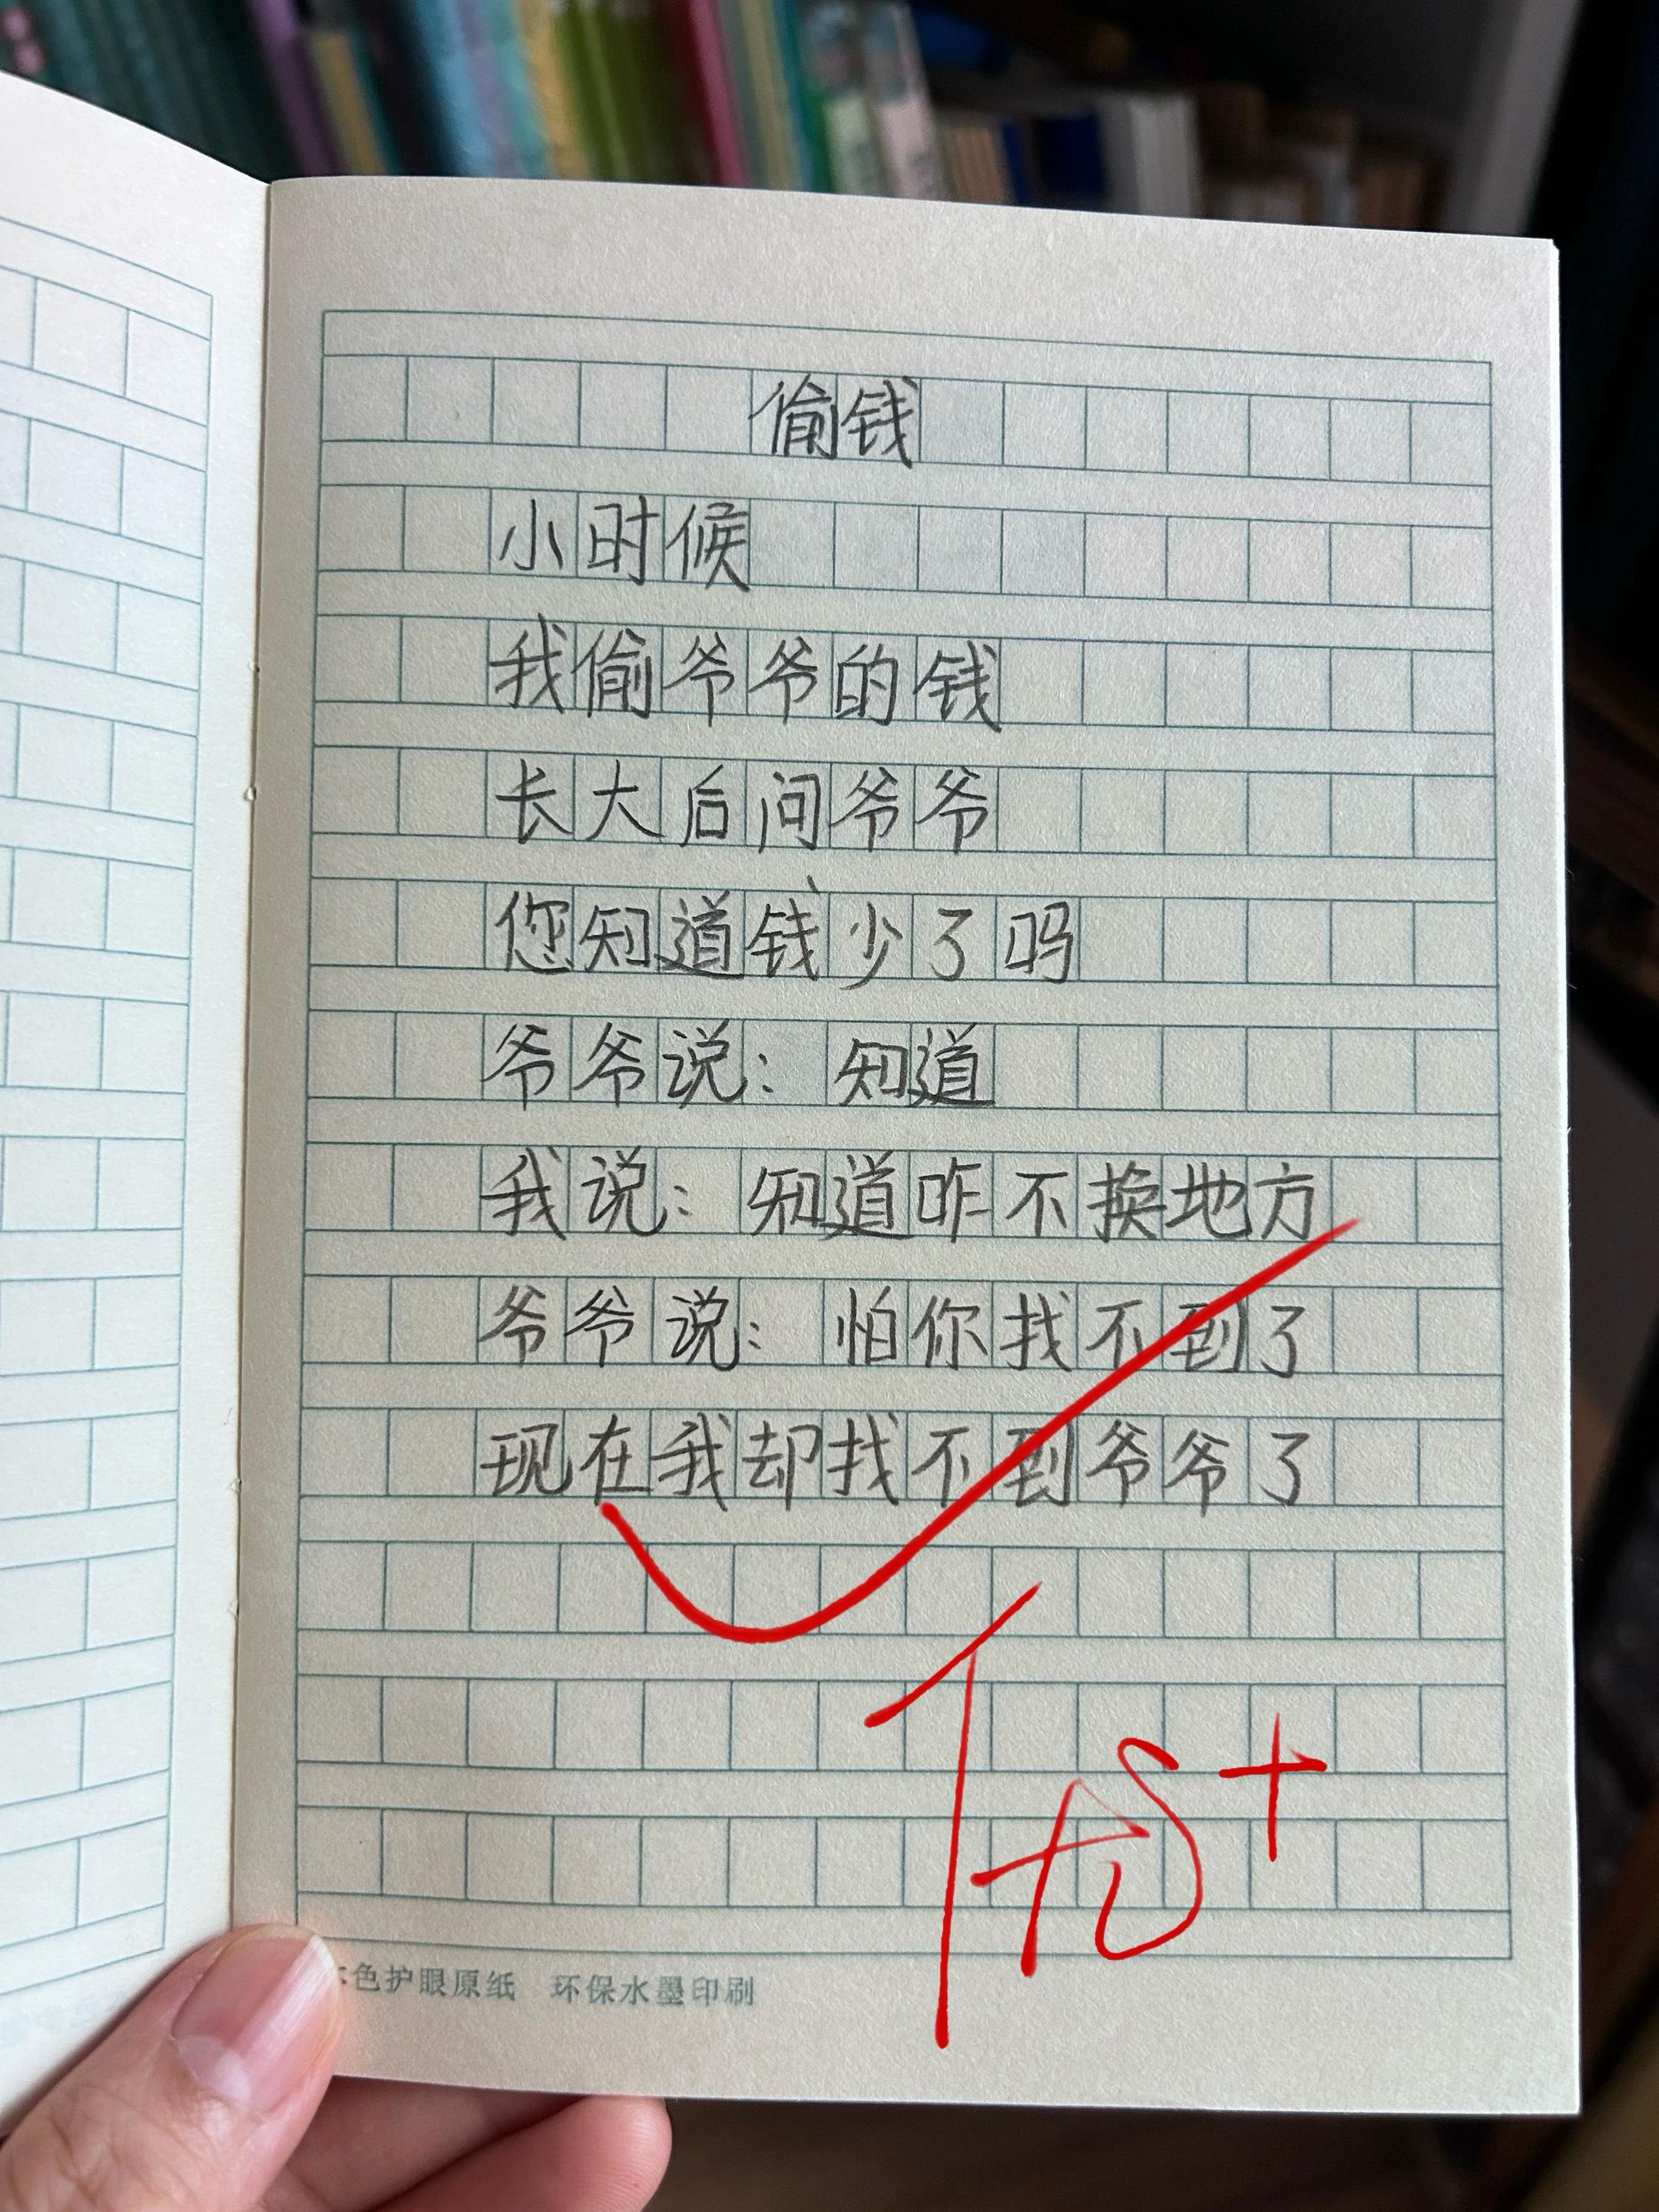 偷钱
小时候
我偷爷爷的钱
长大后问爷爷
您知道钱少了吗
爷爷说：知道
我说：知道咋不换地方
爷爷说：怕你找不到了
现在我却找不到爷爷了
优+
色护眼原纸 环保水墨印刷